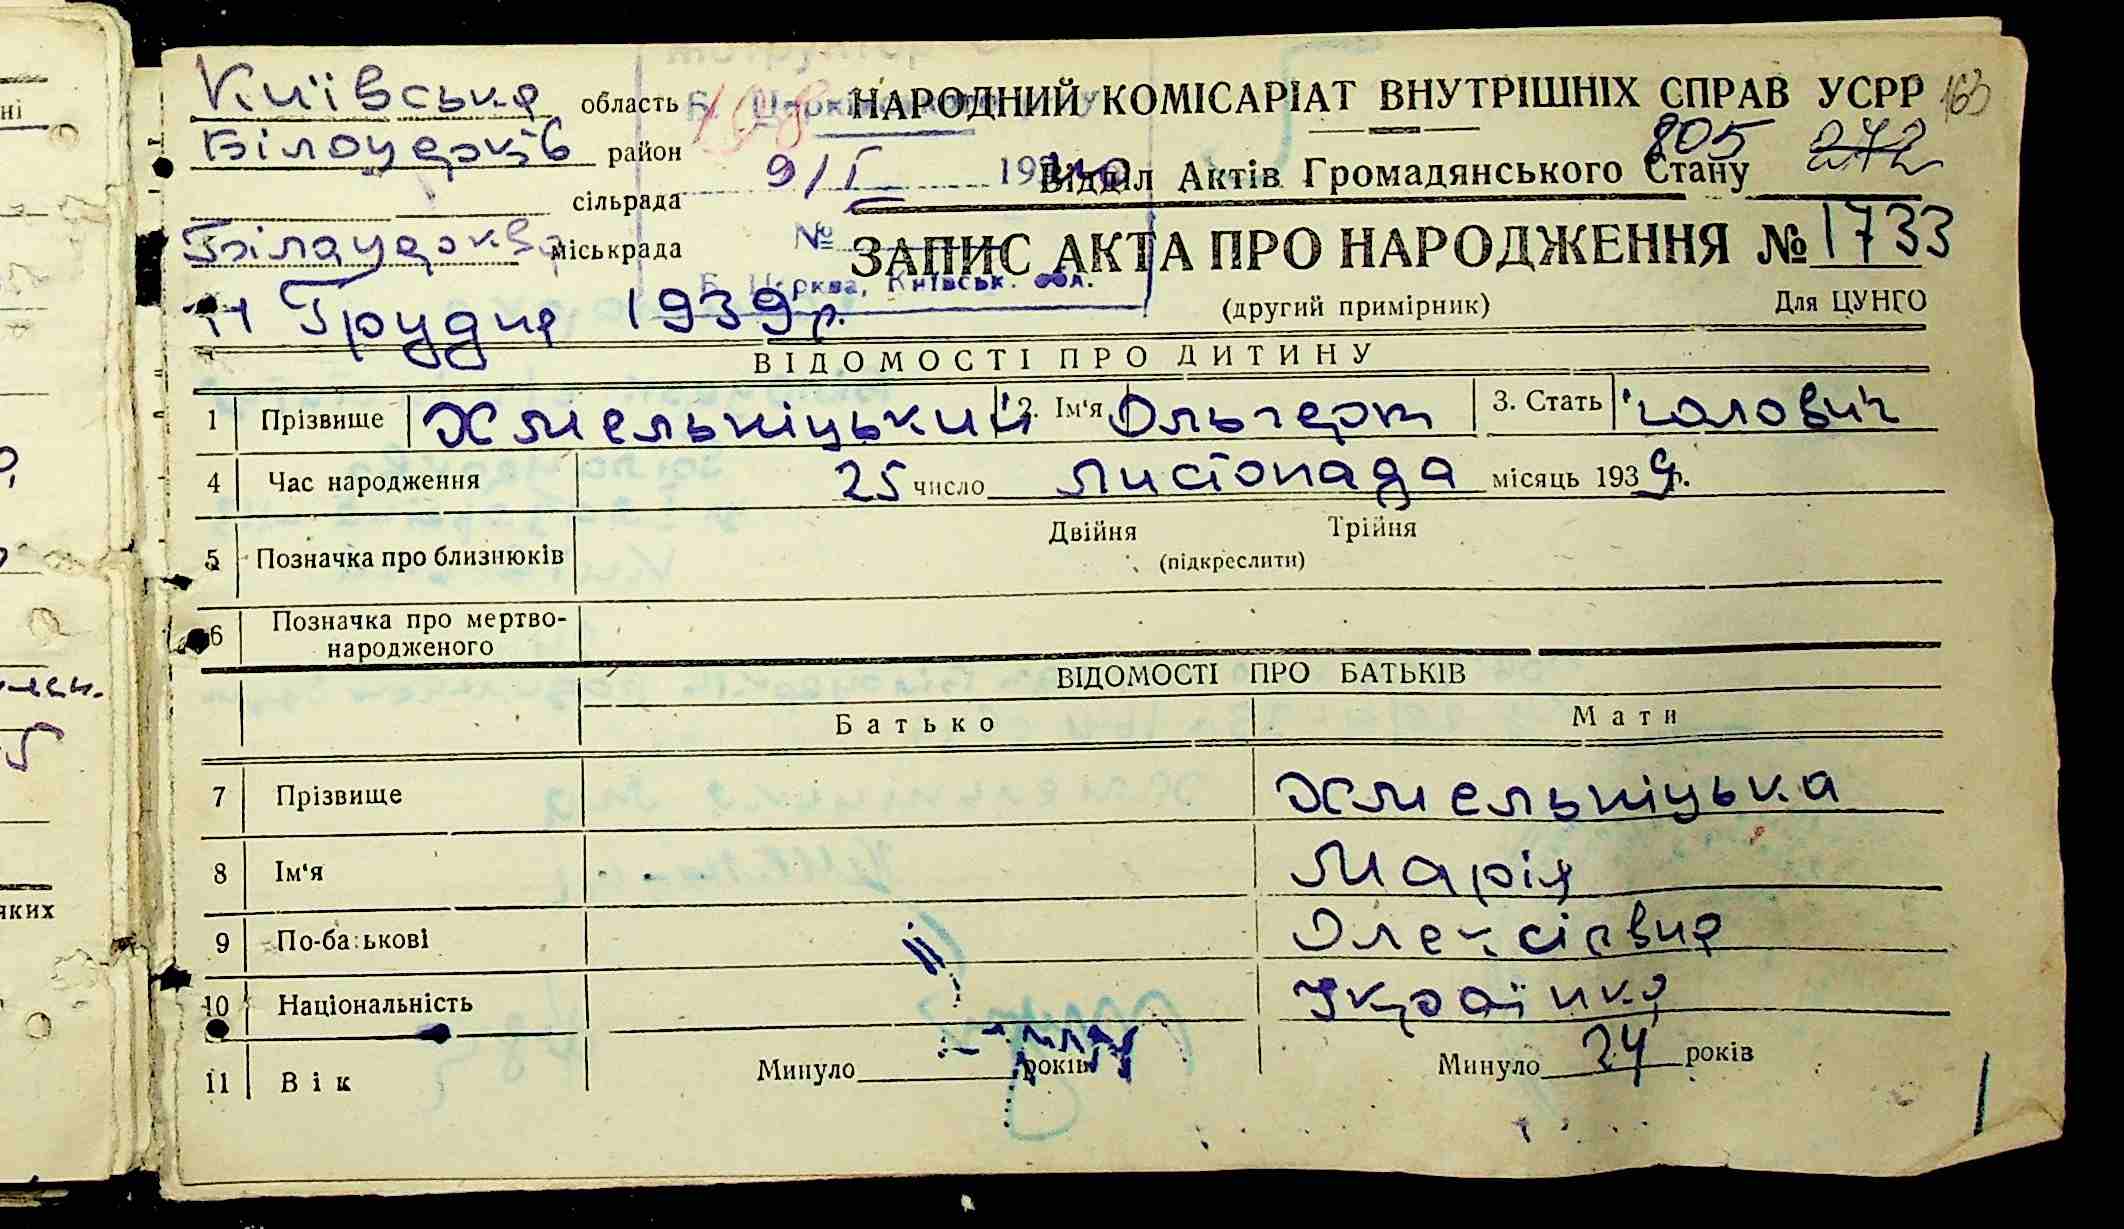 Київська область
Білоцерків район
сільрада
Білоцерківа міськрада
НАРОДНИЙ КОМІСАРІАТ ВНУТРІШНІХ СПРАВ УСРР 163
805 272
Відділ Актів Громадянського Стану
9/I 1940
№
Б. Церква, Київськ. обл.
ЗАПИС АКТА ПРО НАРОДЖЕННЯ № 1733
(другий примірник) Для ЦУНГО
11 Грудня 1939 р.
ВІДОМОСТІ ПРО ДИТИНУ
1 Прізвище Хмельніцький 2. Ім'я Ольгерт 3. Стать чолович
4 Час народження 25 число листопада місяць 1939 р.
5 Позначка про близнюків Двійня Трійня
(підкреслити)
6 Позначка про мертво-
народженого
ВІДОМОСТІ ПРО БАТЬКІВ
Батько Мати
7 Прізвище Хмельніцька
8 Ім'я Марія
9 По-батькові Олексієвна
10 Національність Українка
11 Вік Минуло років Минуло 24 років